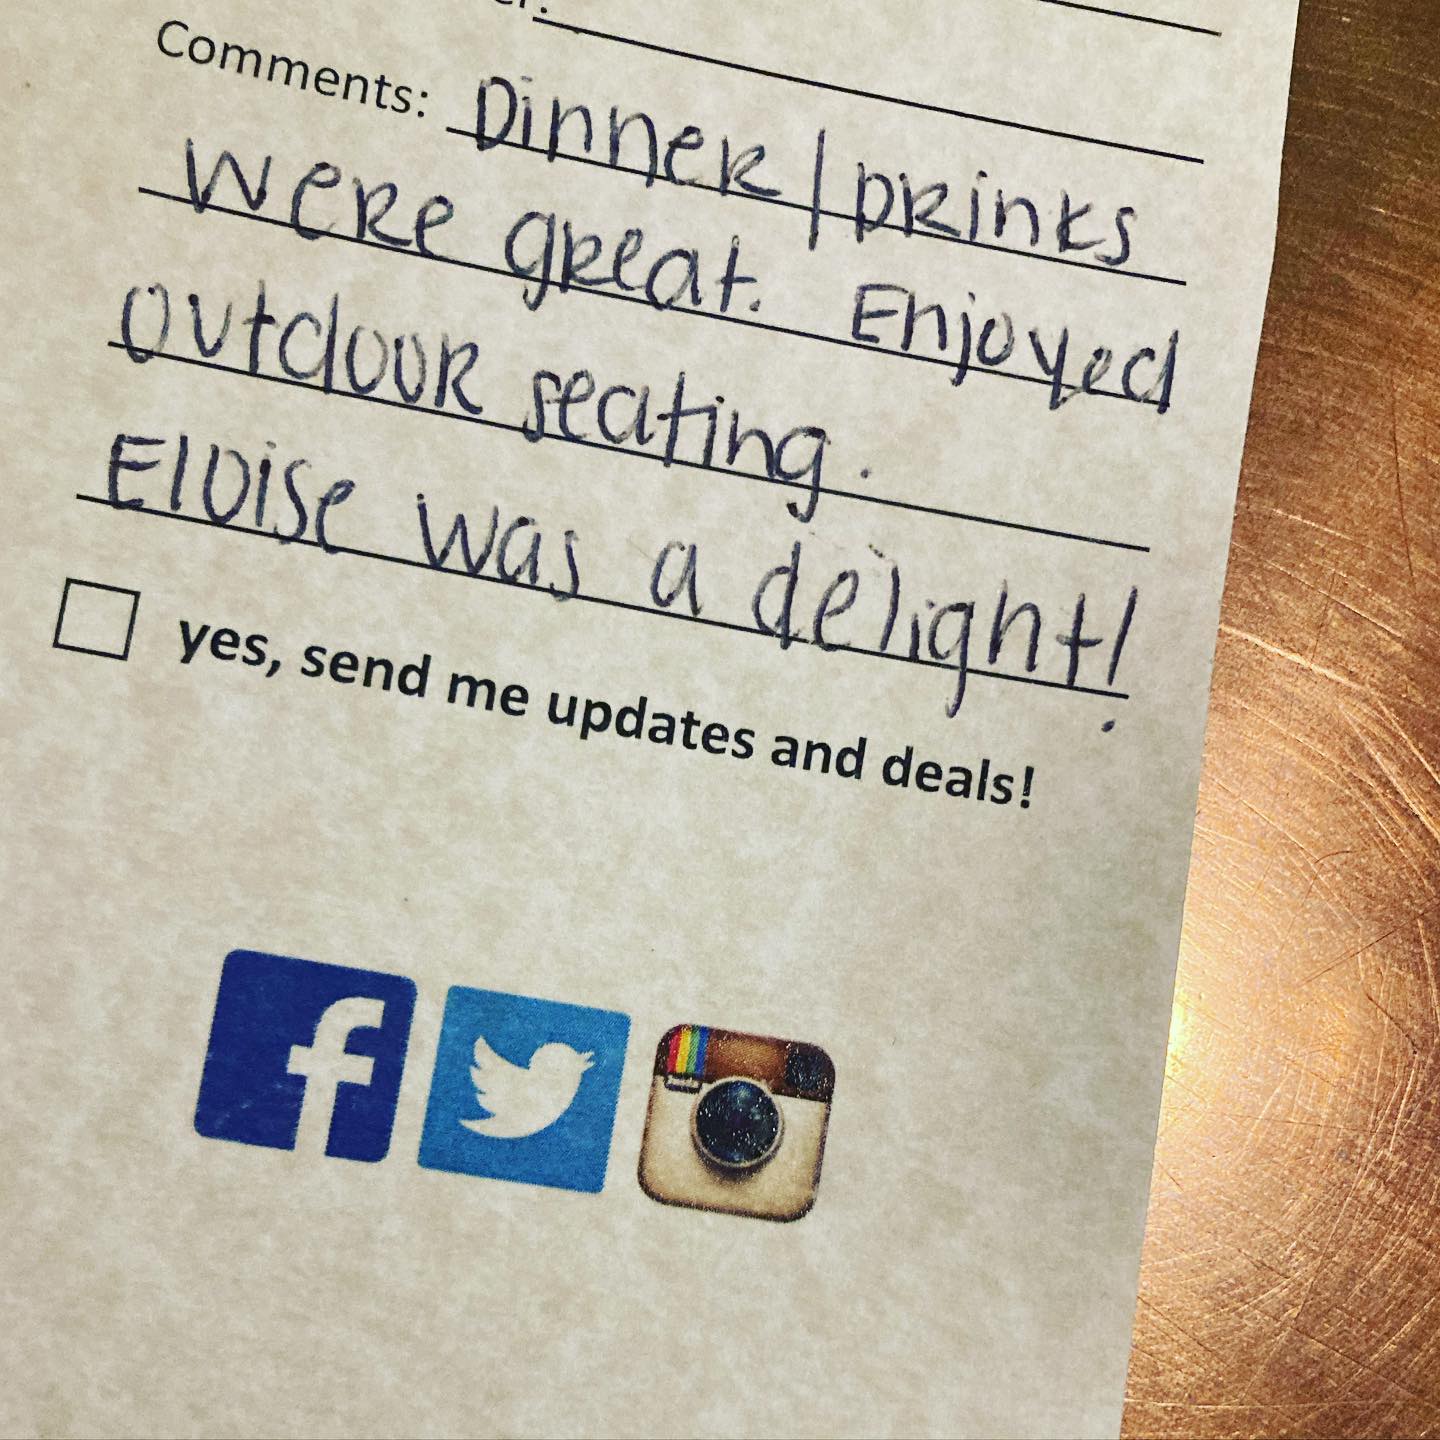 Comments: Dinner/Drinks
were great. Enjoyed
outdoor seating.
Eloise was a delight!
yes, send me updates and deals!